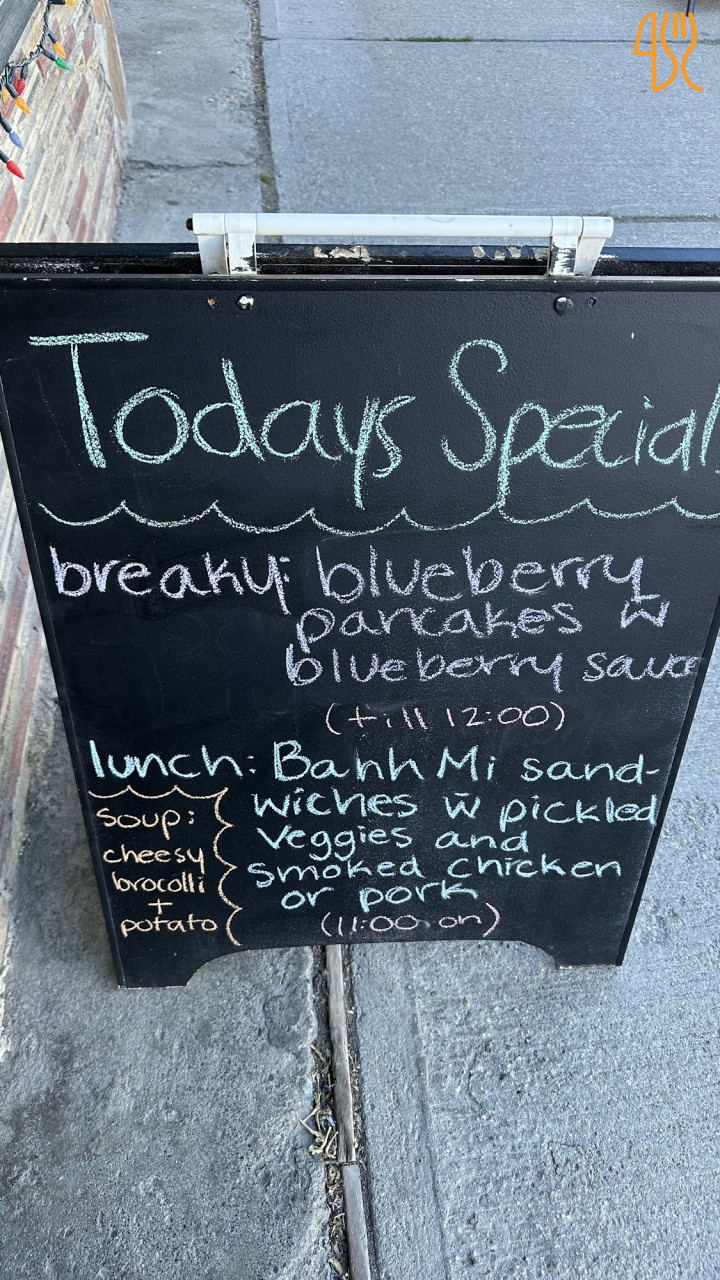 Todays Specials
breaky: blueberry
pancakes w
blueberry sauce
(till 12:00)
lunch: Bahn Mi sand-
wiches w pickled
veggies and
smoked chicken
or pork
(11:00 on)
soup:
cheesy
brocolli
+
potato